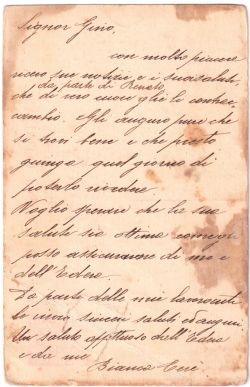 Signor Gino,
con molto piacere
ricevo sue notizie e i suoi saluti,
da parte di Renato
che di vero cuor gli li contrac
cambio. Gli auguro pure che
si trovi bene e che presto
giunga quel giorno di
poterlo rivedere.
Voglio sperare che la sua
salute sia ottima come gli
posso assicurare di me e
dell'Edera.
Da parte delle mie
le invio sinceri saluti ed auguri.
Un saluto affettuoso dall'Edera
e da me
Bianca